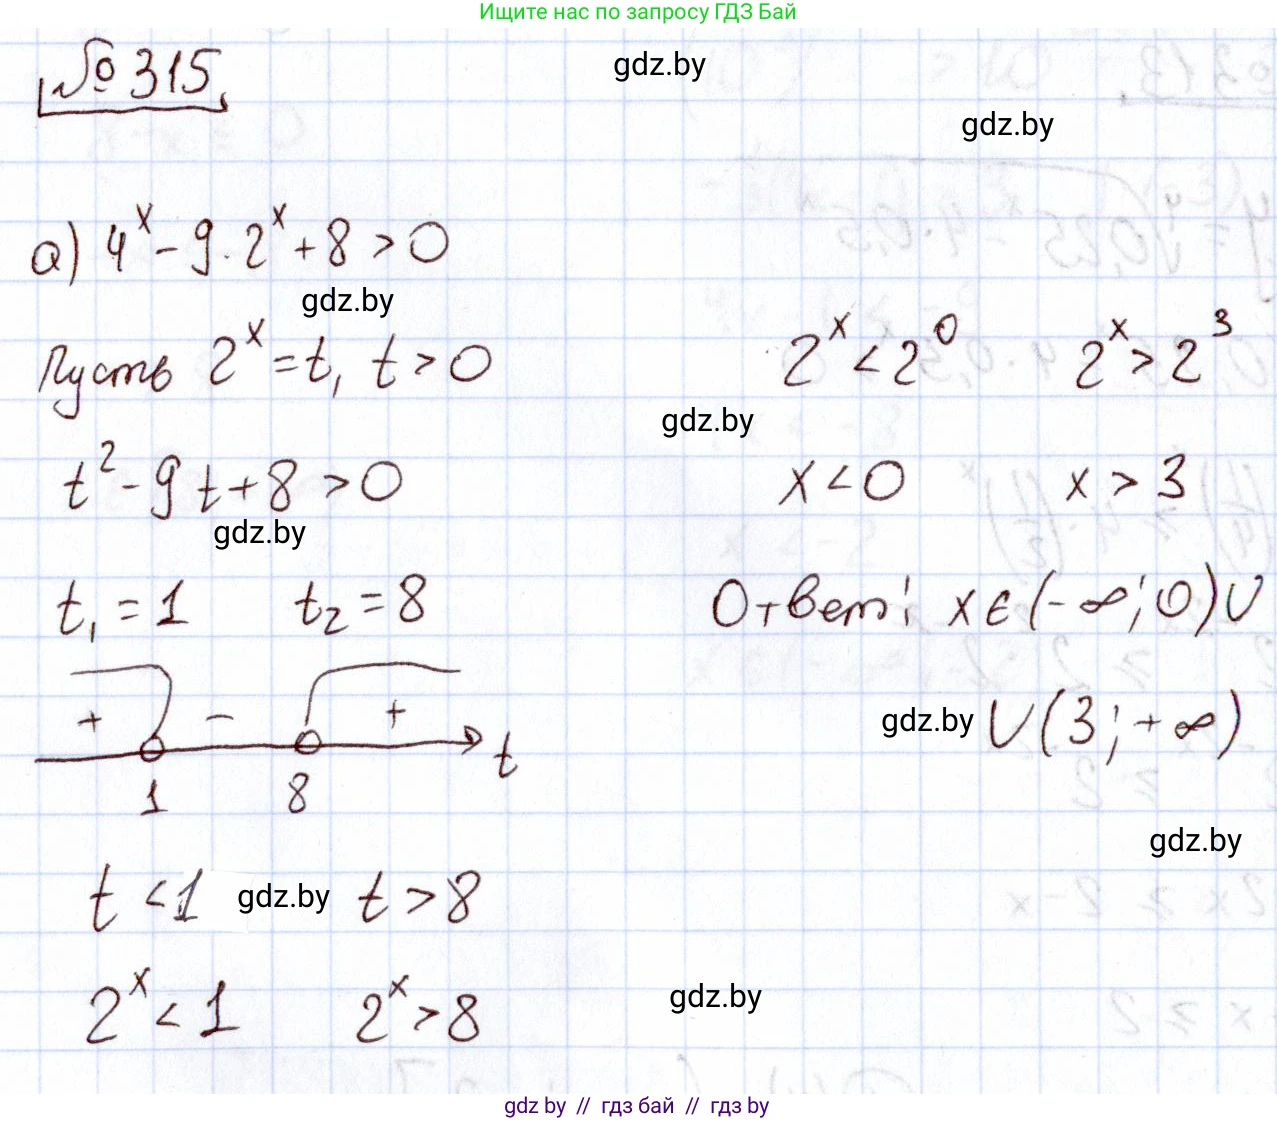 Ищите нас по запросу ГДЗ Бай
№ 315
gdz.by
gdz.by
а) 4ˣ - 9 · 2ˣ + 8 > 0
gdz.by
Пусть 2ˣ = t, t > 0
t² - 9t + 8 > 0
gdz.by
t₁ = 1 t₂ = 8
+ - + t
1 8
t < 1 gdz.by t > 8
2ˣ < 1 2ˣ > 8
2ˣ < 2⁰ 2ˣ > 2³
gdz.by
x < 0 x > 3
Ответ: x ∈ (-∞; 0) ∪
gdz.by ∪ (3; +∞)
gdz.by
gdz.by
gdz by // гдз бай // gdz by